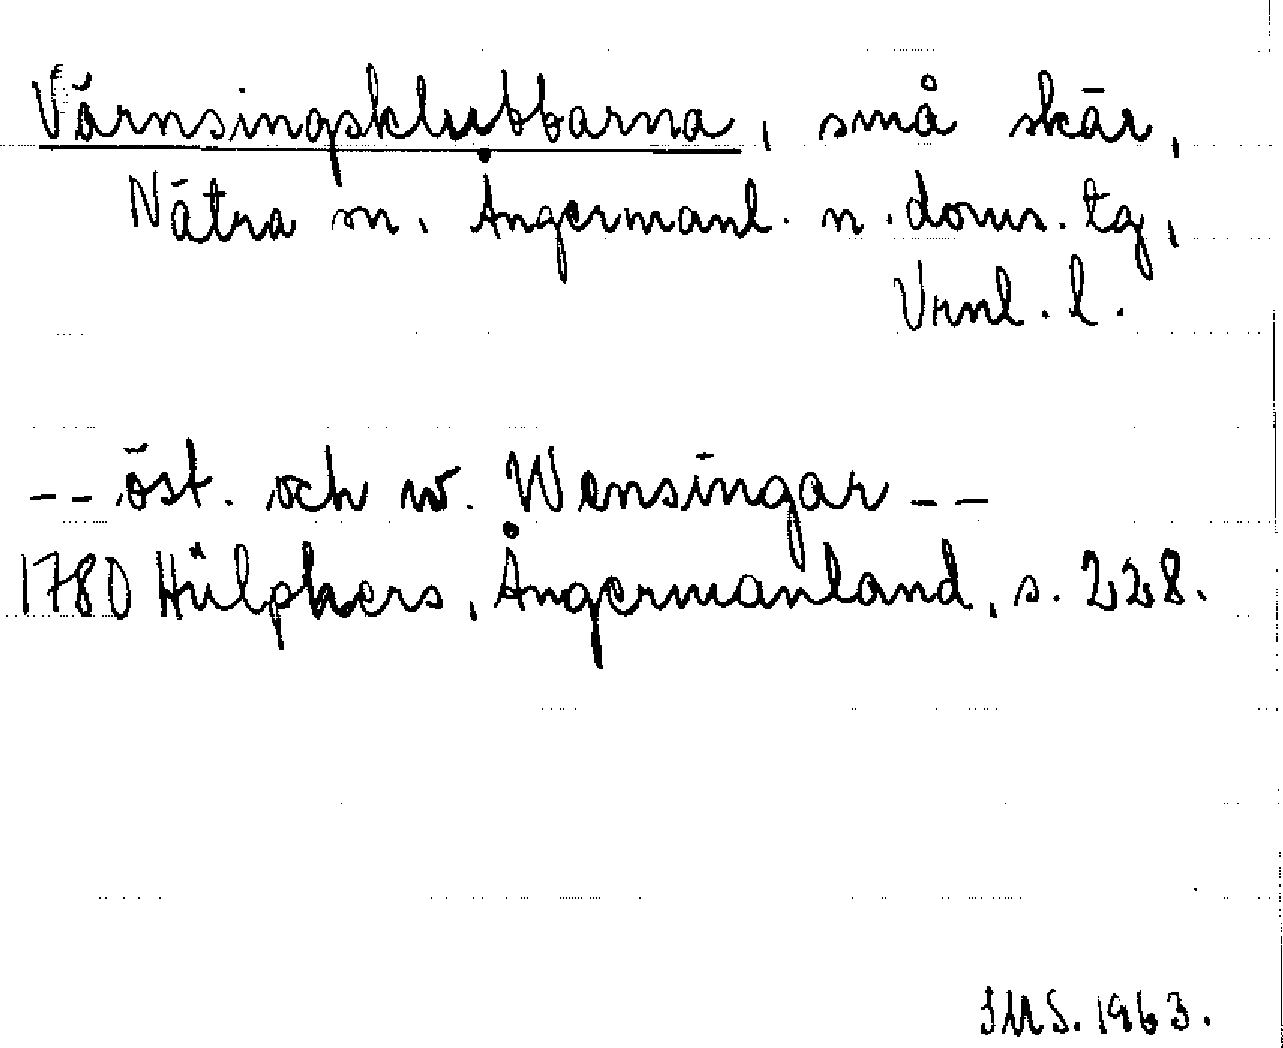 Värnsingsklubbarna, små skär,
Nätra sn, Ångermanl. n. doms. tg,
Vrnl. l.
-- öst. och w. Wensingar --
1780 Hülphers, Ångermanland, s. 228.
SMS. 1963.